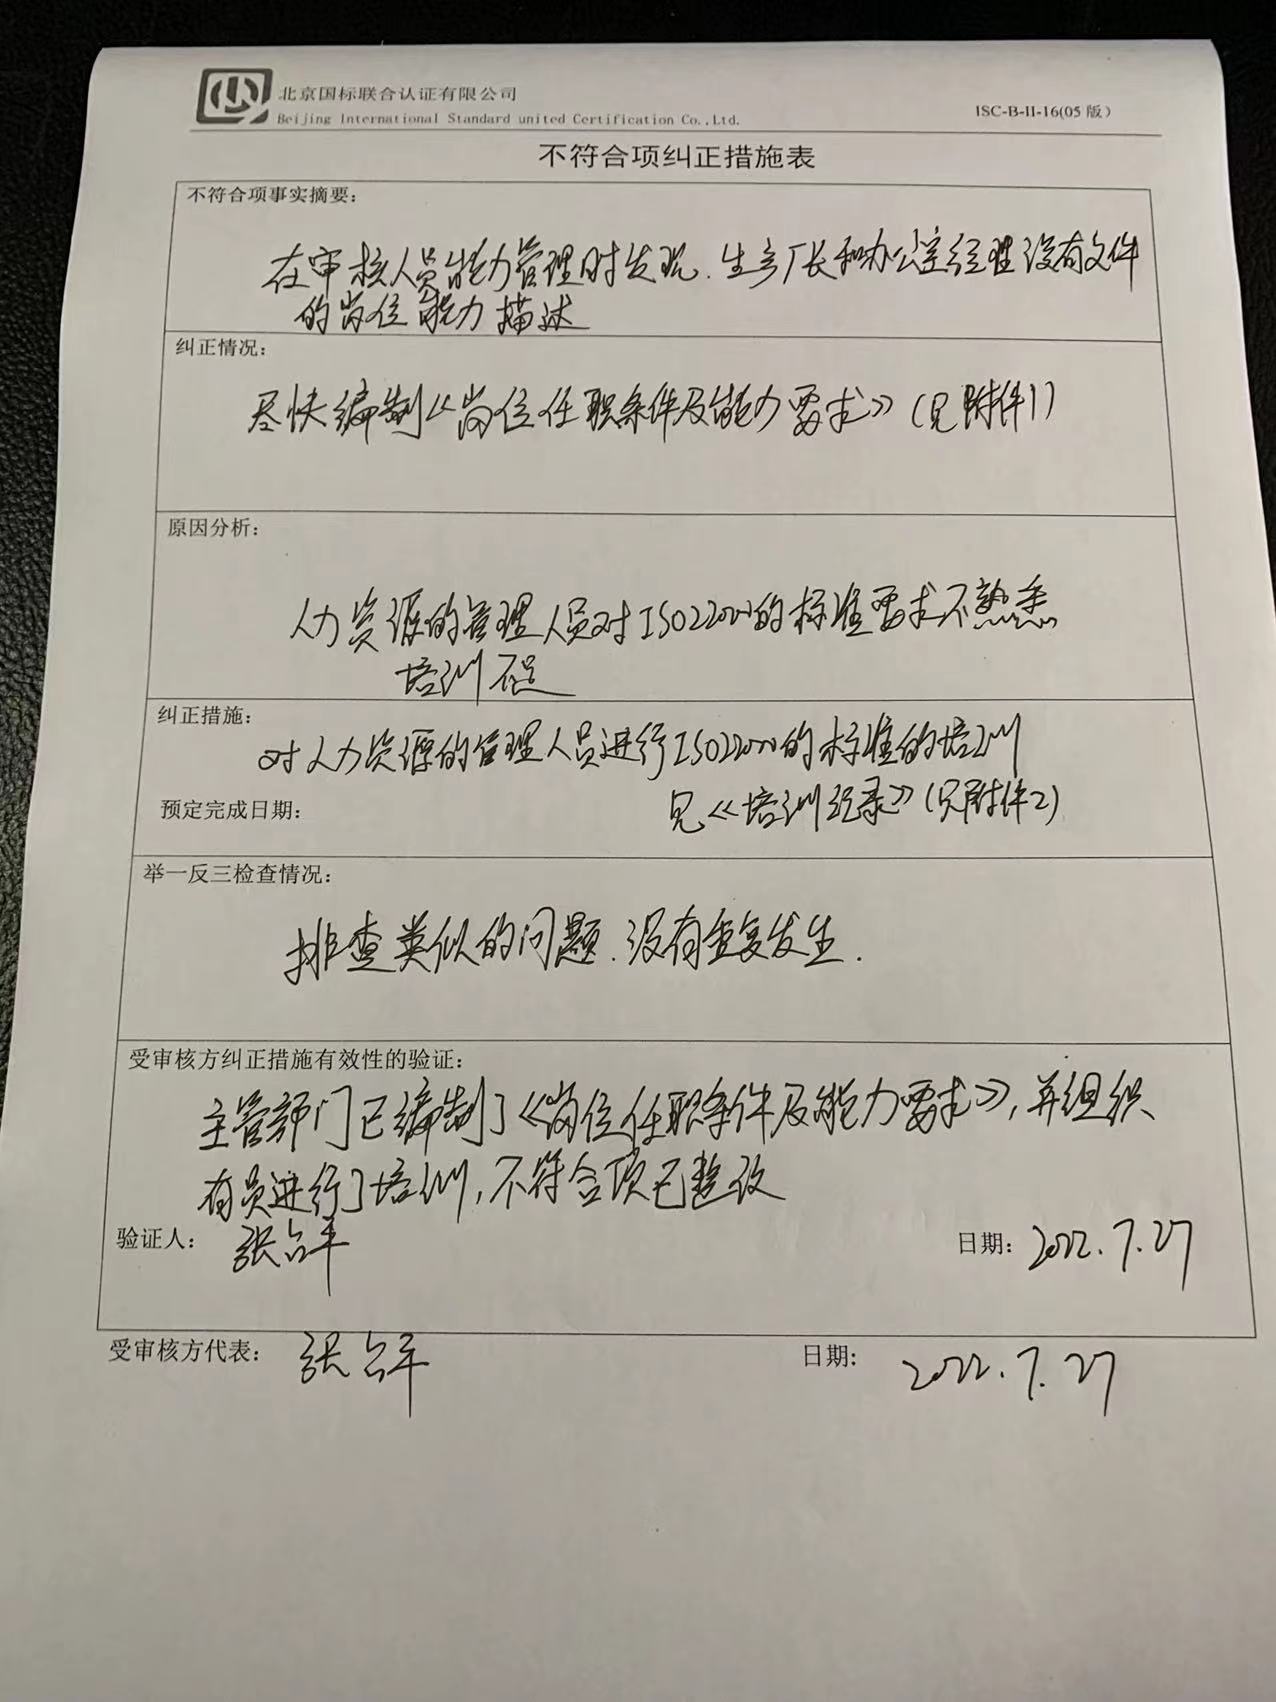 北京国标联合认证有限公司
Beijing International Standard united Certification Co.,Ltd.
ISC-B-II-16(05版)
不符合项纠正措施表
不符合项事实摘要：
在审核人员能力管理时发现.生产厂长和办公室经理没有文件
的岗位能力描述
纠正情况：
尽快编制《岗位任职条件及能力要求》(见附件1)
原因分析：
人力资源的管理人员对ISO22000的标准要求不熟悉
培训不足
纠正措施：
对人力资源的管理人员进行ISO22000的标准的培训
见《培训记录》(见附件2)
预定完成日期：
举一反三检查情况：
排查类似的问题.没有重复发生.
受审核方纠正措施有效性的验证：
主管部门已编制了《岗位任职条件及能力要求》,并组织
有员进行了培训,不符合项已整改
验证人： 张
日期：2022.7.27
受审核方代表： 张
日期: 2022.7.27